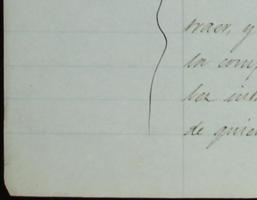 traer, y
la comp
los int
de quien